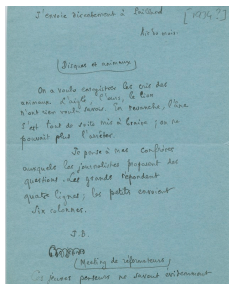 J'envoie directement à Gaillard
[1974?]
Disques et animaux
On a voulu enregistrer les cris des
animaux. L'aigle, l'ours, le lion
n'ont rien voulu savoir. En revanche, l'âne
s'est tout de suite mis à braire; on ne
pouvait plus l'arrêter.
Je pense à mes confrères
auxquels les journalistes posaient des
questions. Les grands répondent
quatre lignes; les petits envoient
six colonnes.
J.B.
(Meeting de réformateurs)
porteurs ne savent évidemment